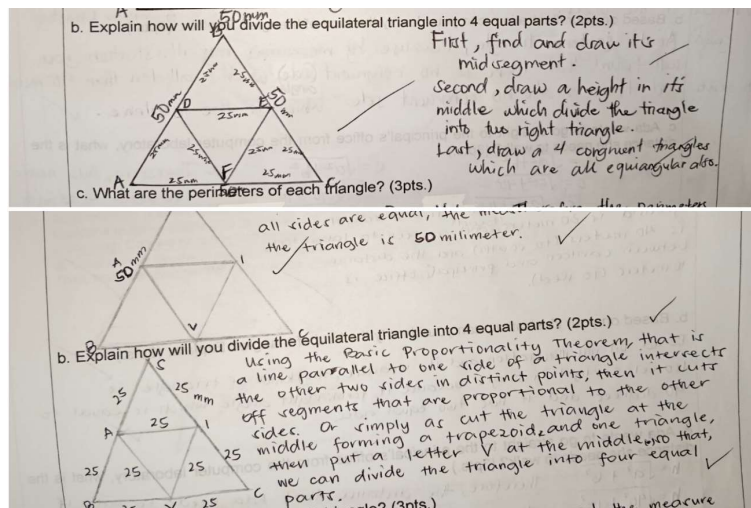 A
50mm
b. Explain how will you divide the equilateral triangle into 4 equal parts? (2pts.)
First, find and draw it's
midsegment.
Second, draw a height in it's
middle which divide the triangle
into two right triangle.
Last, draw a 4 congruent triangles
which are all equiangular also.
50mm
25mm
25mm
D
E
50mm
25mm
25mm
25mm
25mm
25mm
A
25mm
F
25mm
C
c. What are the perimeters of each triangle? (3pts.)
all sides are equal, the
the triangle is 50 milimeter.
A
50mm
I
B
V
C
b. Explain how will you divide the equilateral triangle into 4 equal parts? (2pts.)
Using the Basic Proportionality Theorem, that is
a line parallel to one side of a triangle intersects
the other two sides in distinct points, then it cuts
off segments that are proportional to the other
sides. Or simply as cut the triangle at the
middle forming a trapezoid, and one triangle,
then put a letter V at the middle, so that,
we can divide the triangle into four equal
parts.
S
25
25
mm
A
25
I
25
25
25
25
B
V
25
C
(3pts.)
the measure